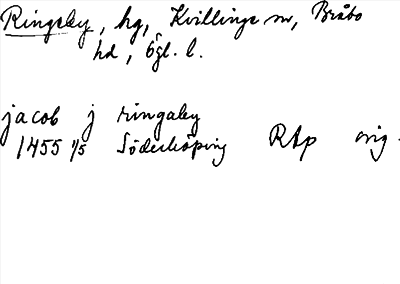 Ringsby, hg, Kvillinge sn, Bråbo
hd, Ögl. l.
jacob j ringaby
1455 1/5 Söderköping RAp orig.